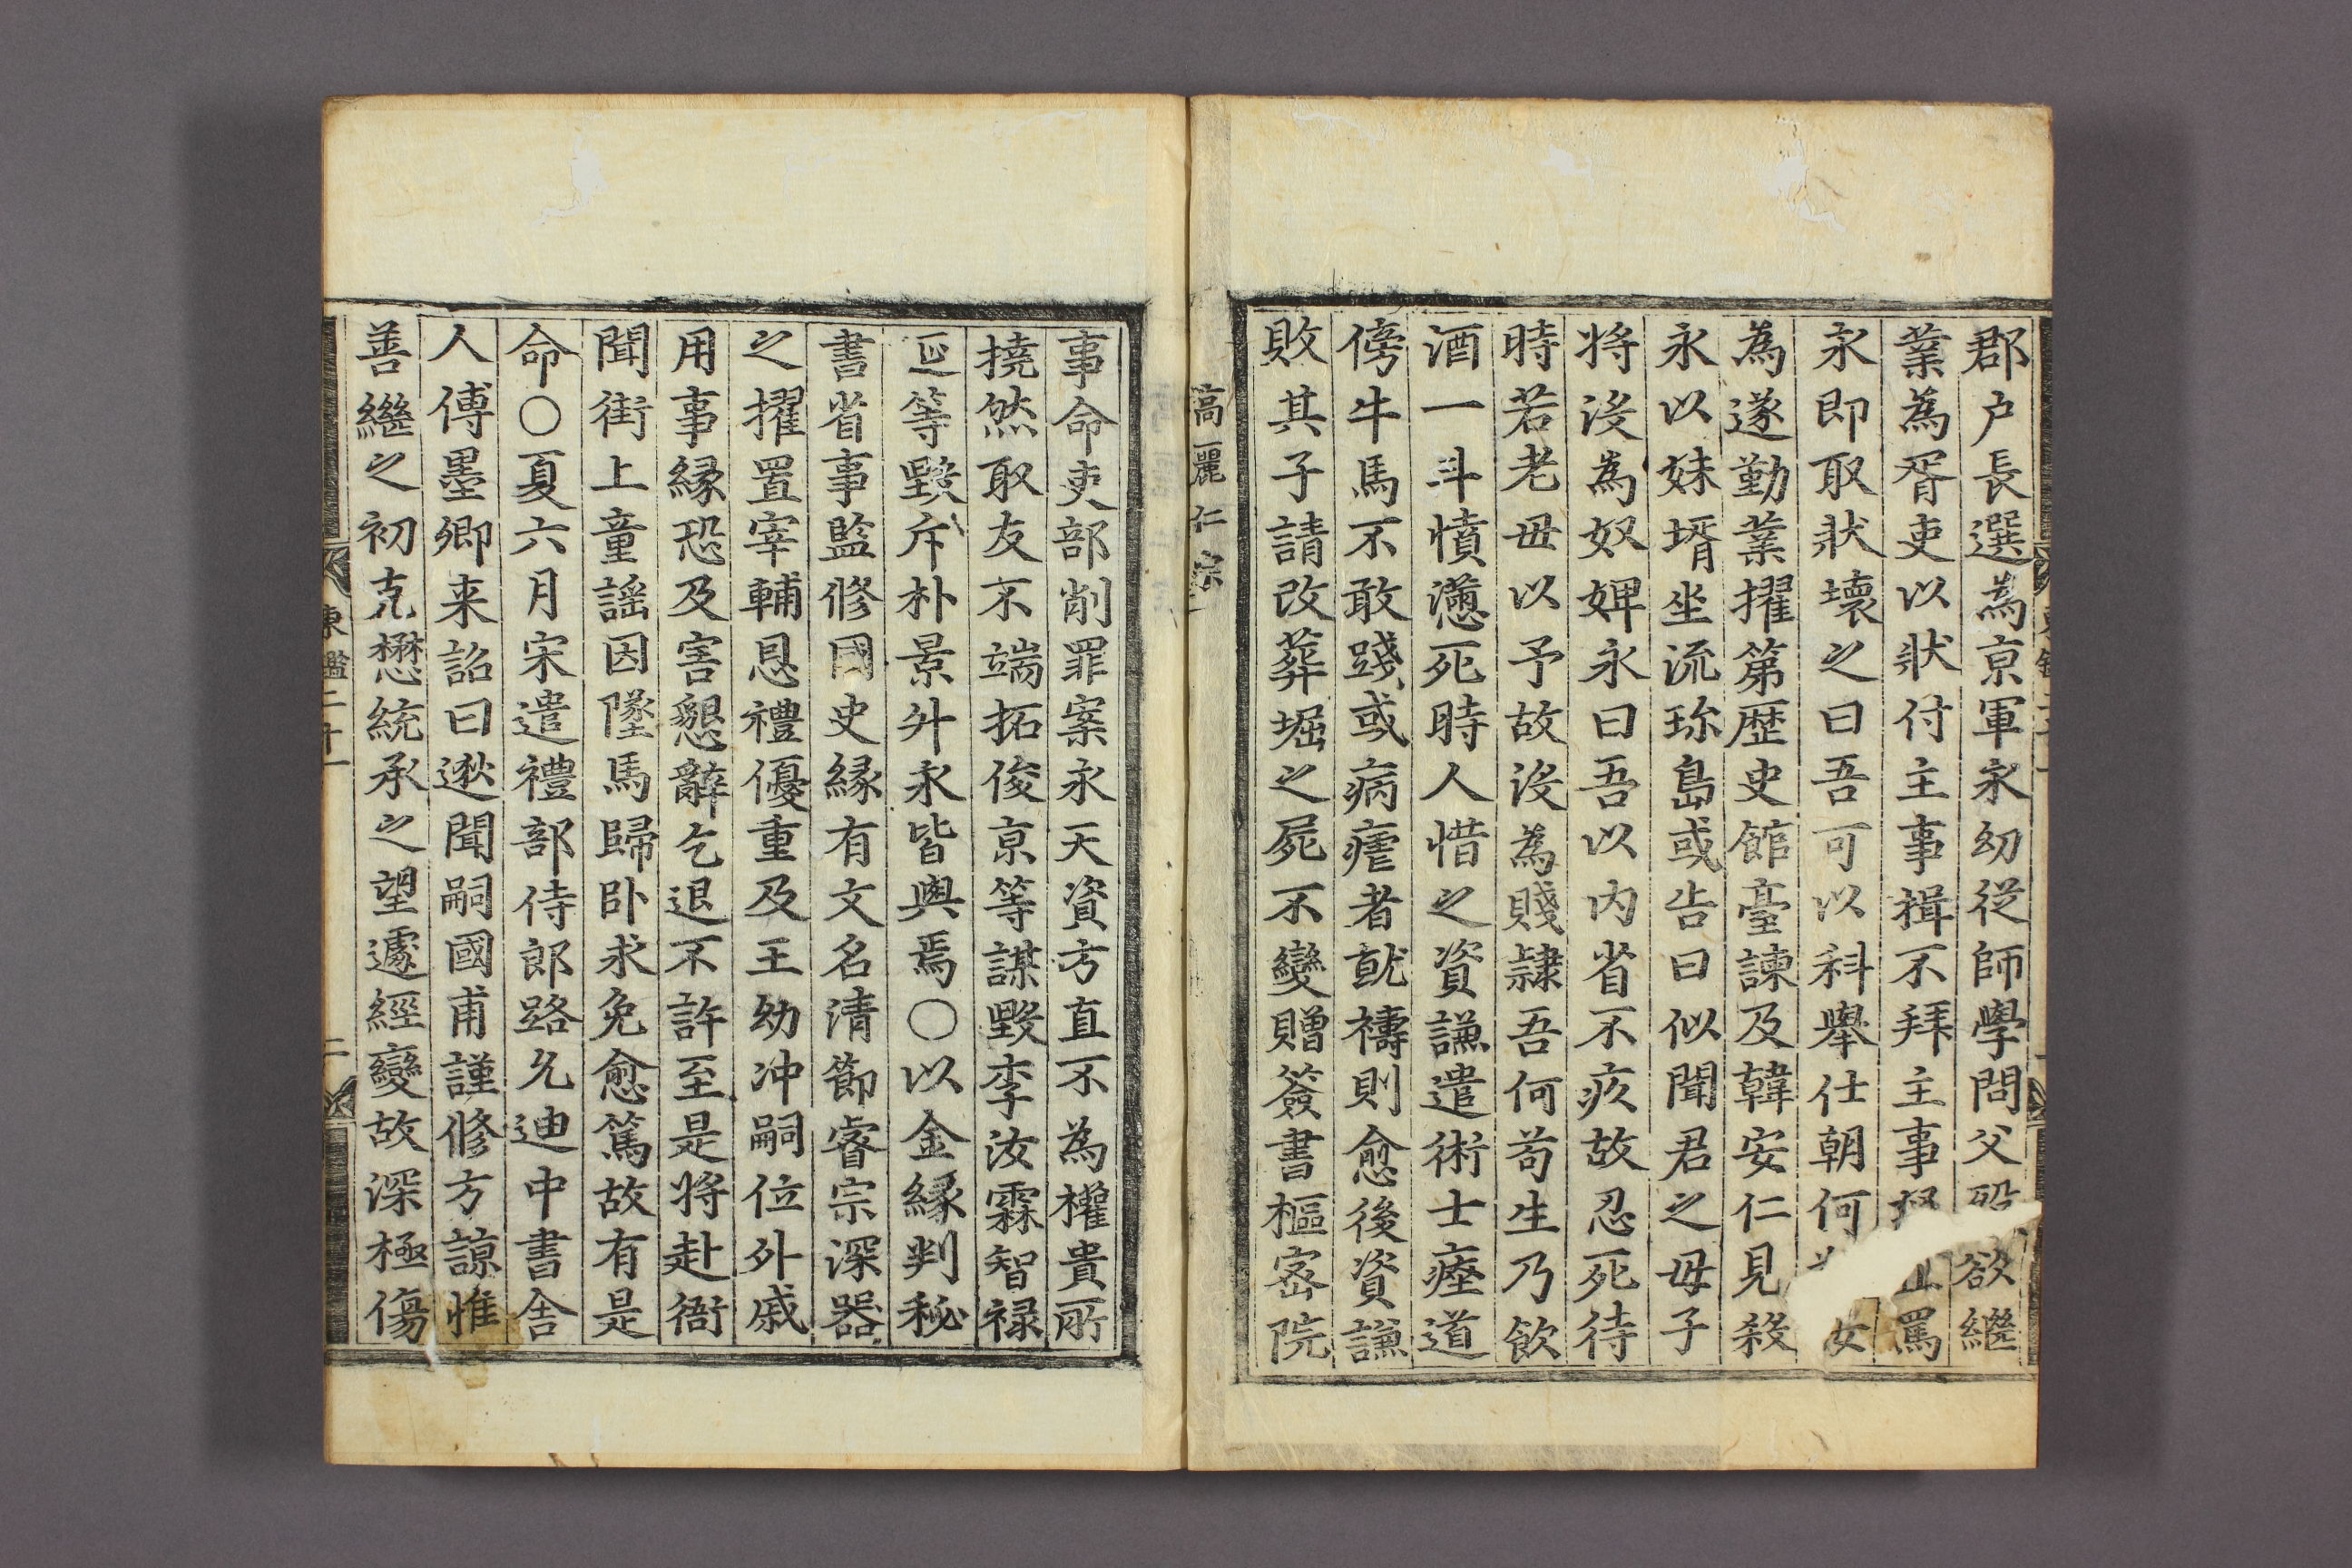 郡户長選為京軍永幼從師學問父歿欲繼
業為胥吏以狀付主事揖不拜主事罵
永即取狀壞之曰吾可以科舉仕朝何汝
為遂勤業擢第歷史館臺諫及韓安仁見殺
永以妹壻坐流珎島或告曰似聞君之毋子
将没為奴婢永曰吾以内省不疚故忍死待
時若老毋以予故没為賤隷吾何苟生乃飲
酒一斗憤懣死時人惜之資謙遣術士瘞道
傍牛馬不敢踐或病瘧者就禱則愈後資謙
敗其子請改葬堀之屍不變贈簽書樞宻院
高麗仁宗
事命吏部削罪案永天資方直不為權貴所
撓然取友不端拓俊京等謀毀李汝霖智禄
延等毀斥朴景升永皆與焉〇以金縁判秘
書省事監修國史縁有文名清節睿宗深器
之擢置宰輔恩禮優重及王幼冲嗣位外戚
用事縁恐及害懇辭乞退不許至是将赴衙
聞街上童謡因墜馬歸卧求免愈篤故有是
命〇夏六月宋遣禮部侍郎路允迪中書舎
人傅墨卿来詔曰逖聞嗣國甫謹修方諒惟
善繼之初克懋統承之望遽經變故深極傷
東鑑二十一
二